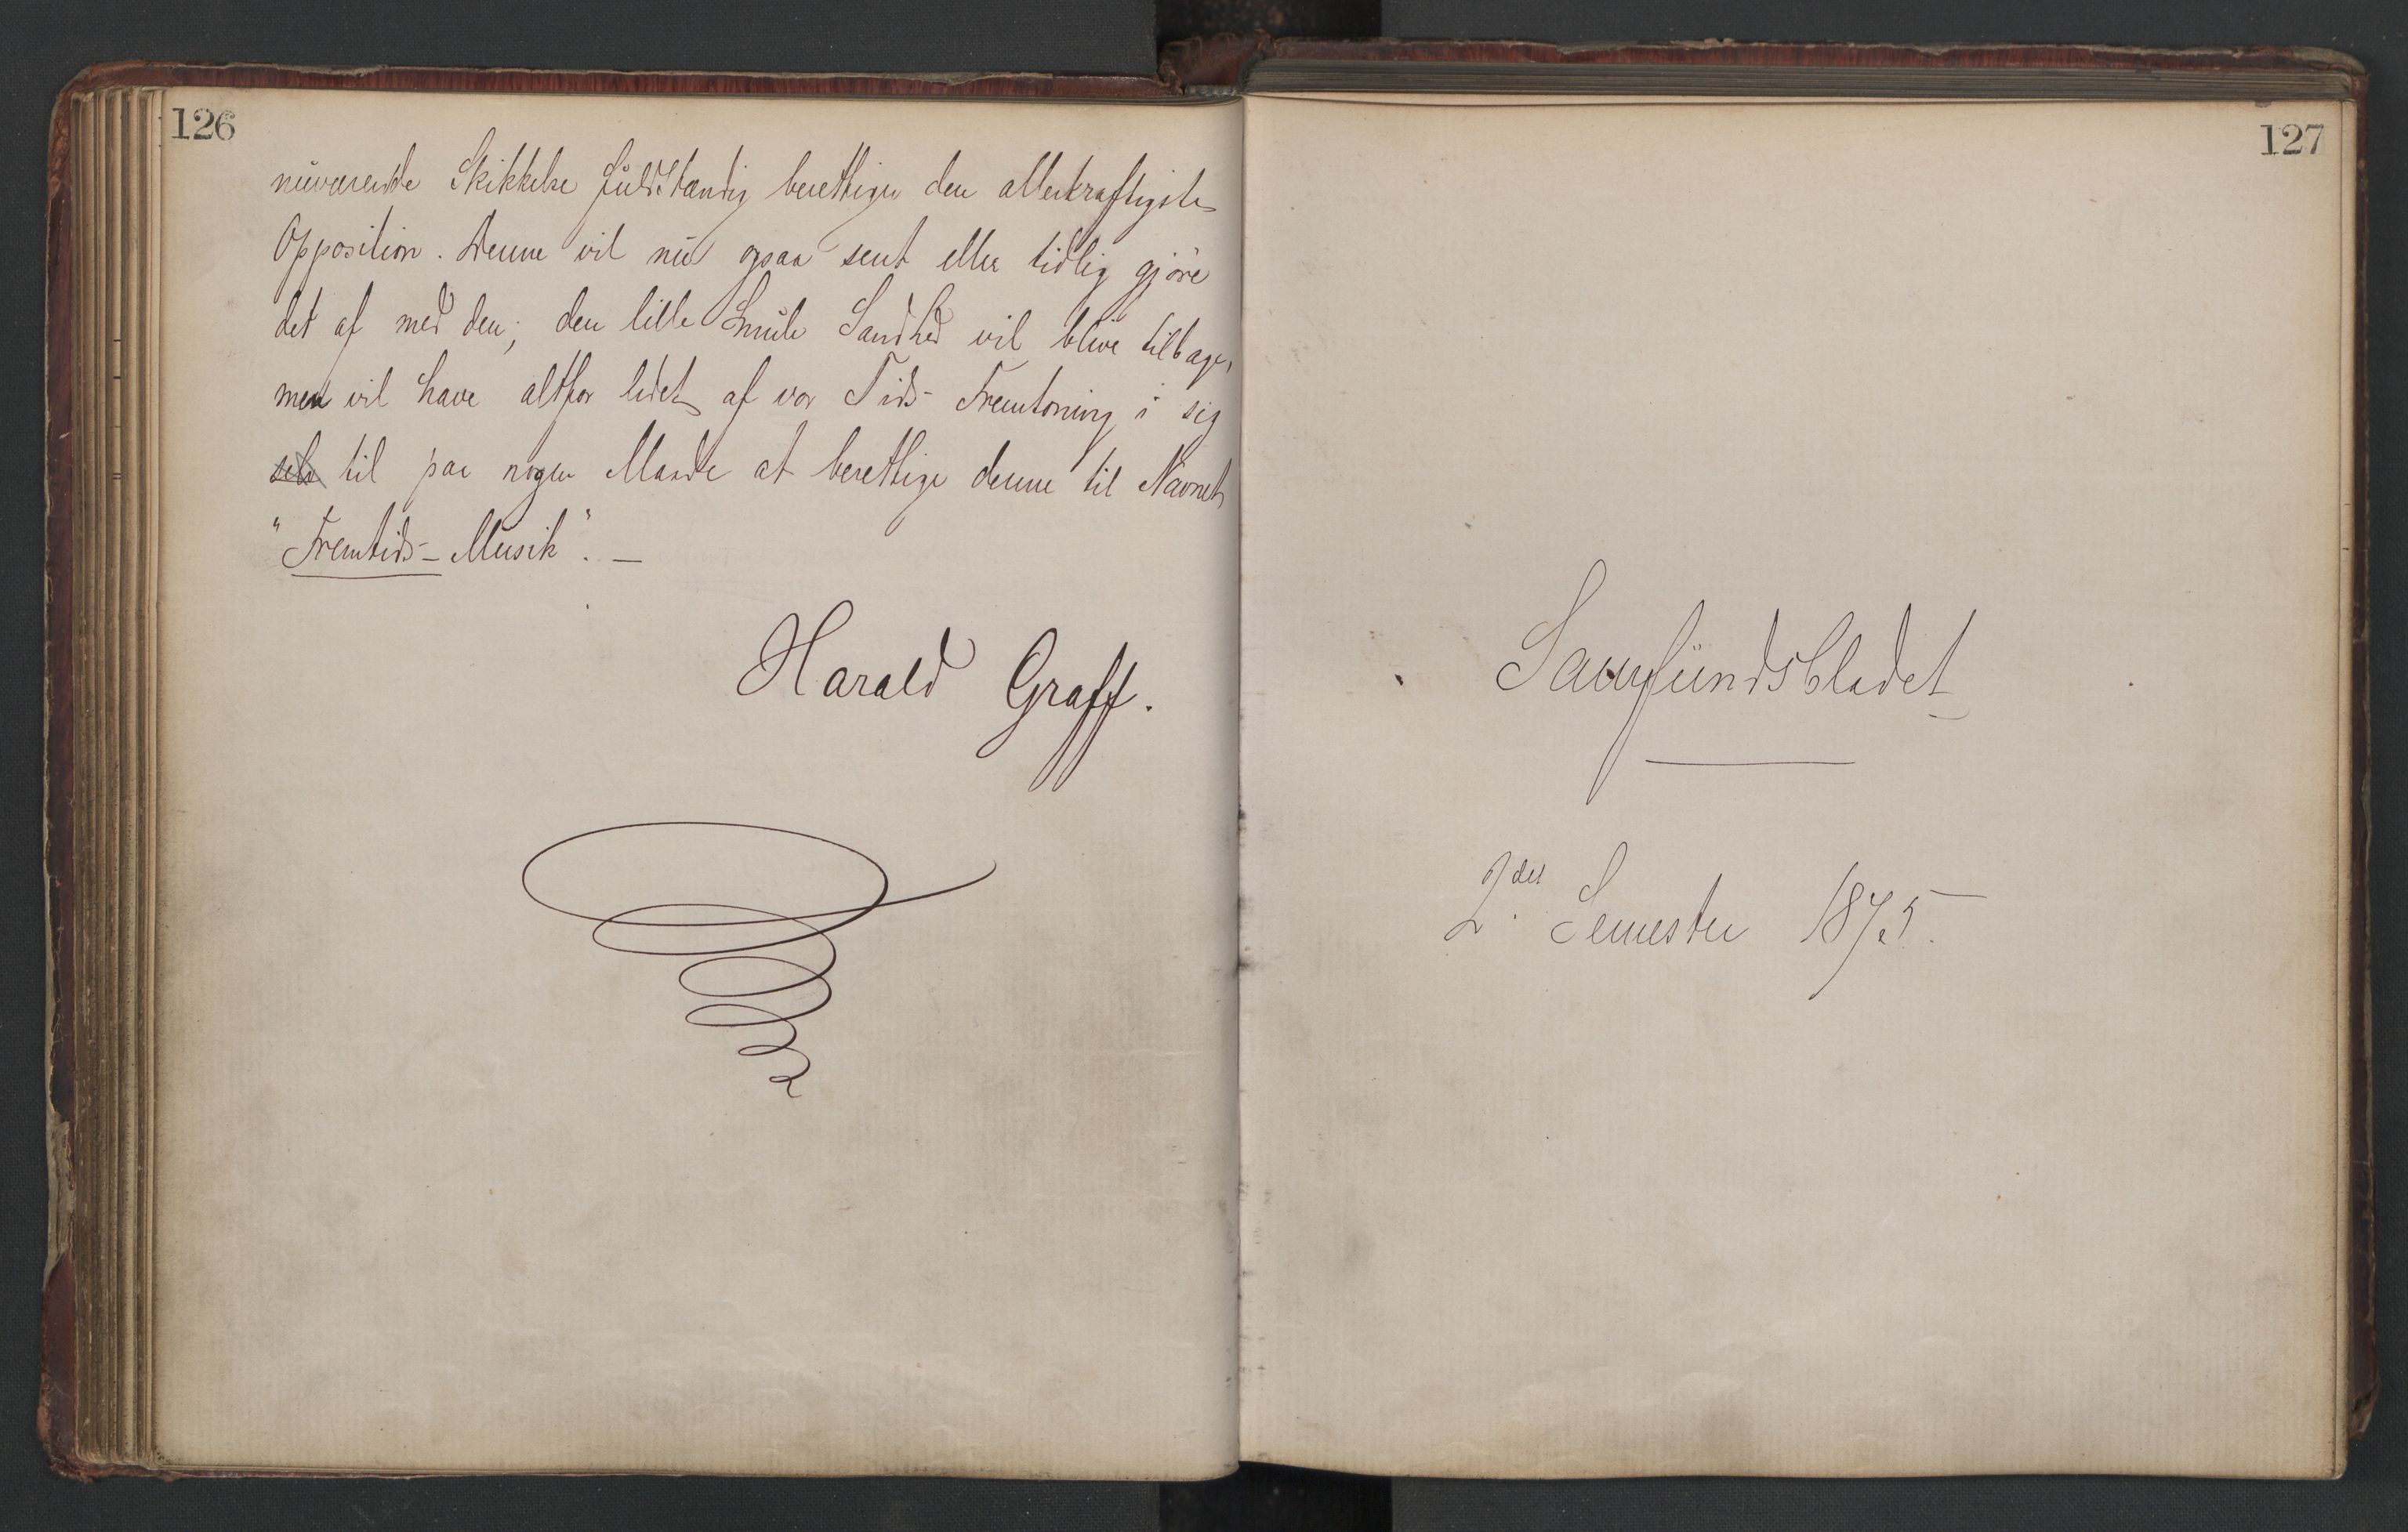 126
nuværende Skikkelse fuldstændig berettiger den allerkraftigste
Opposition. Denne vil nu ogsaa sent eller tidlig gjöre
det af med den; den lille Smule Sandhed vil blive tilbage,
men vil have altfor lidet af vor Tids-Fremtoning i sig
selv til paa nogen Maade at berettige denne til Navnet
"Fremtids-Musik". —
Harald Graff.
127
Samfundsbladet
2det Semester 1875.